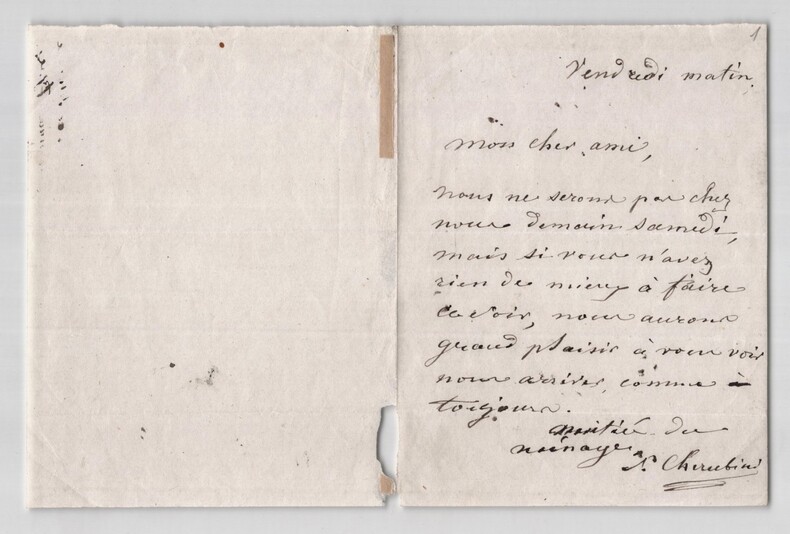 1
Vendredi matin.
Mon cher ami,
nous ne serons pas chez
nous demain samedi,
mais si vous n'avez
rien de mieux à faire
ce soir, nous aurons
grand plaisir à vous voir
nous arriver, comme
toujours.
amitié du
ménage
Cherubini